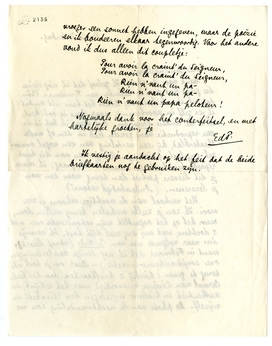 2135
vroeger een sonnet hebben ingegeven, maar de poëzie
en ik bouderen elkaar tegenwoordig. Voor het andere
vond ik dus alleen dit coupletje:
Pour avoir la craint' du Seigneur,
Pour avoir la craint' du Seigneur,
Rien n'vaut un pa-
Rien n'vaut un pa-
Rien n'vaut un papa peloteur!
Nogmaals dank voor het conterfeitsel, en met
hartelijke groeten, je
EdP.
Ik vestig je aandacht op het feit dat de beide
briefkaarten nog te gebruiken zijn.